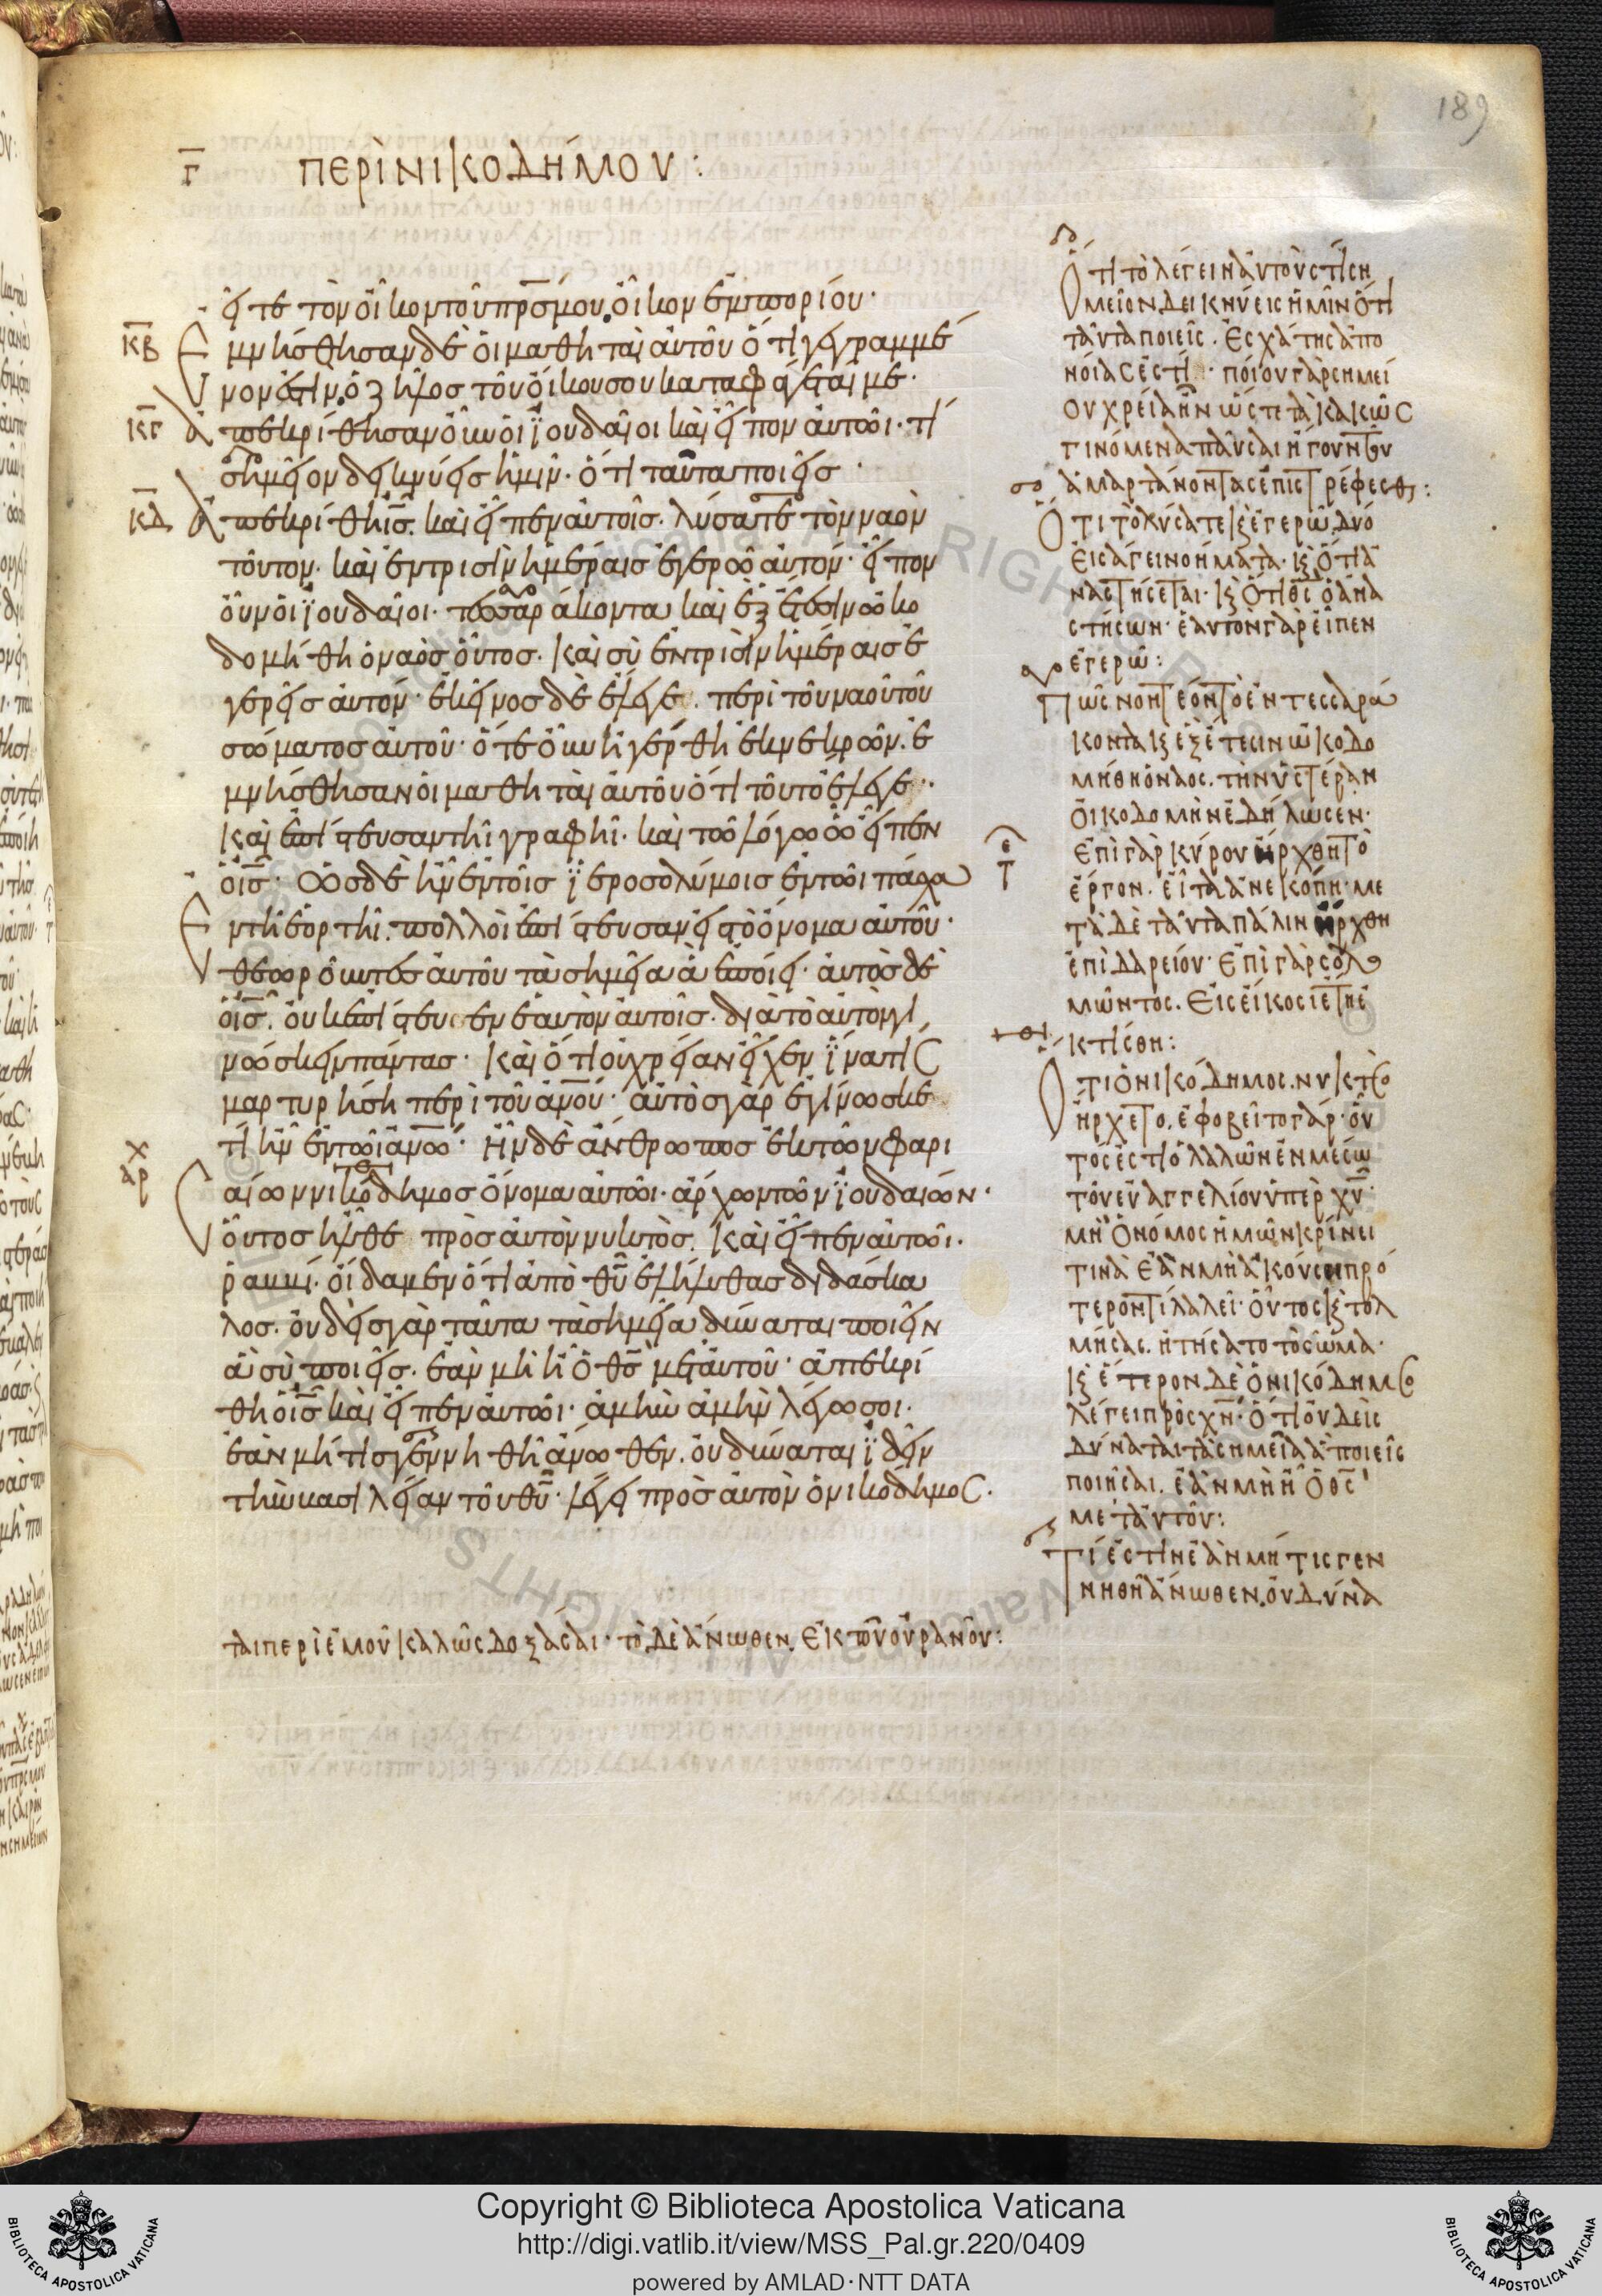 189
Γ ΠΕΡῚ ΝΙΚΟΔΉΜΟΥ :
εῖτε τὸν οἶκον τοῦ πρσ̅ μου. οἶκον ἐμπορίου·
ΚΒ Ἐμνήσθησαν δὲ οἱ μαθηταὶ αὐτοῦ ὅτι γεγραμμέ
νον ἐστίν. ὁ ζῆλος τοῦ οἴκου σου καταφάγεταί με·
ΚΓ Ἀπεκρίθησαν οὖν οἱ ϊουδαῖοι καὶ εἶπον αὐτῶι· τί
σημεῖον δεικνύεις ἡμῖν· ὅτι ταῦτα ποιεῖς·
ΚΔ Ἀπεκρίθη ις̅. καὶ εἶπεν αὐτοῖς· λύσατε τὸν ναὸν
τοῦτον· καὶ ἐν τρισὶν ἡμέραις ἐγερῶ αὐτόν· εἶπον
οὖν οἱ ϊουδαῖοι· τεσσαράκοντα καὶ ἓξ ἔτεσιν ὠκο
δομήθη ὁ ναὸς οὗτος· καὶ σὺ ἐν τρισὶν ἡμέραις ἐ
γερεῖς αὐτόν· ἐκεῖνος δὲ ἔλεγε περὶ τοῦ ναοῦ τοῦ
σώματος αὐτοῦ· ὅτε οὖν ἠγέρθη ἐκ νεκρῶν. ἐ
μνήσθησαν οἱ μαθηταὶ αὐτοῦ ὅτι τοῦτο ἔλεγε·
καὶ ἐπίστευσαν τῆι γραφῆι· καὶ τῶ λόγω ὧ εἶπεν
ὁ ις̅· Ὡς δὲ ἦν ἐν τοῖς ϊεροσολύμοις ἐν τῶι πάσχα
ἐν τῆι ἑορτῆι. πολλοὶ ἐπίστευσαν εἰς τὸ ὄνομα αὐτοῦ·
θεωροῦντες αὐτοῦ τὰ σημεῖα ἃ ἐποίει· αὐτὸς δὲ
ὁ ις̅. οὐκ ἐπίστευεν ἑαυτὸν αὐτοῖς· διὰ τὸ αὐτὸν γι
νώσκειν πάντας· καὶ ὅτι οὐ χρείαν εἶχεν ϊνα τις
μαρτυρήση περὶ τοῦ ανου̅· αὐτὸς γὰρ ἐγίνωσκε
τί ἦν ἐν τῶι ανω̅· Ἦν δὲ ἄνθρωπος ἐκ τῶν φαρι
ΑΡΧ σαίων νικόδημος ὄνομα αὐτῶι· ἄρχων τῶν ϊουδαίων·
οὗτος ἦλθε πρὸς αὐτὸν νυκτὸς. καὶ εἶπεν αὐτῶι·
ῥαββί· οἴδαμεν ὅτι ἀπὸ θυ̅ ἐλήλυθας διδάσκα
λος· οὐδεὶς γὰρ ταῦτα τὰ σημεῖα δύναται ποιεῖν
ἃ σὺ ποιεῖς· ἐὰν μὴ ἦ ὁ θς̅ μετ αὐτοῦ· ἀπεκρί
θη ὁ ις̅ καὶ εἶπεν αὐτῶι· ἀμὴν ἀμὴν λέγω σοι·
ἐὰν μή τις γεννηθῆ ἄνωθεν. οὐ δύναται ϊδεῖν
τὴν βασιλείαν τοῦ θυ̅· λέγει πρὸς αὐτὸν ὁ νικόδημος·
Ὅτι τὸ λέγειν αὐτοὺς τί ση
μεῖον δεικνύεις ἡμῖν ὅτι
ταῦτα ποιεῖς· ἐσχάτης ἀπο
νοίας ἐστί· ποίου γὰρ σημεί
ου χρεία ἦν ὥστε τὰ κακῶς
γινόμενα παῦσαι
ἁμαρτάνοντας ἐπιστρέφεσθαι :
Ὅτι τὸ λύσατε καὶ ἐγερῶ. δύο
εἰσάγει νοήματα· καὶ ὅτι ἀ
ναστήσεται· καὶ ὅτι θς̅ ὁ ἀνα
στήσων· ἑαυτὸν γὰρ εἶπεν
ἐγερῶ :
Πῶς νοητέον τὸ ἐν τεσσαρά
κοντα καὶ ἓξ ἔτεσιν ὠκοδο
μήθη ὁ ναός. τὴν ὑστέραν
οἰκοδομὴν ἐδήλωσεν·
ἐπὶ γὰρ κύρου ἤρχθη τὸ
ἔργον. εἶτα ἀνεκόπη· με
τὰ δὲ ταῦτα πάλιν ἤρχθη
ἐπὶ δαρείου· ἐπὶ γὰρ σολο
μῶντος. εἰς εἴκοσι ἔτη ἐ
κτίσθη :
Ὅτι ὁ νικόδημος. νυκτὸς
ἤρχετο. ἐφοβεῖτο γάρ· οὗ
τός ἐστιν ὁ λαλῶν ἐν μέσω
τοῦ εὐαγγελίου ὑπὲρ χυ̅·
μὴ ὁ νόμος ἡμῶν κρίνει
τινὰ ἐὰν μὴ ἀκούση πρό
τερον τί λαλεῖ· οὗτος καὶ τολ
μήσας. ἠτήσατο τὸ σῶμα·
καὶ ἕτερον δὲ ὁ νικόδημος
λέγει πρὸς χν̅· ὅτι οὐδεὶς
δύναται τὰ σημεῖα ἃ ποιεῖς
ποιῆσαι. ἐὰν μὴ ἦ ὁ θς̅
μετ αὐτοῦ :
Τί ἐστιν ἐὰν μή τις γεν
νηθῆ ἄνωθεν. οὐ δύνα
ται περὶ ἐμοῦ καλῶς δοξάσαι· τὸ δὲ ἄνωθεν. ἐκ τοῦ οὐρανοῦ :
Copyright © Biblioteca Apostolica Vaticana
http://digi.vatlib.it/view/MSS_Pal.gr.220/0409
powered by AMLAD·NTT DATA
BIBLIOTECA APOSTOLICA VATICANA
BIBLIOTECA APOSTOLICA VATICANA